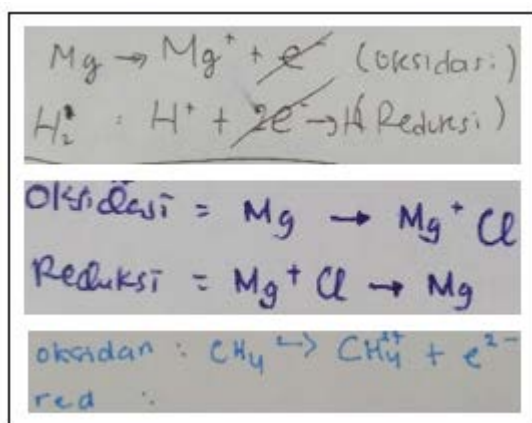 Mg → Mg⁺ + e⁻ (Oksidasi)
H₂ : H⁺ + 2e⁻ → H (Reduksi)
Oksidasi = Mg → Mg⁺ Cl
Reduksi = Mg⁺ Cl → Mg
oksidan : CH₄ → CH₄ + e²⁻
red :